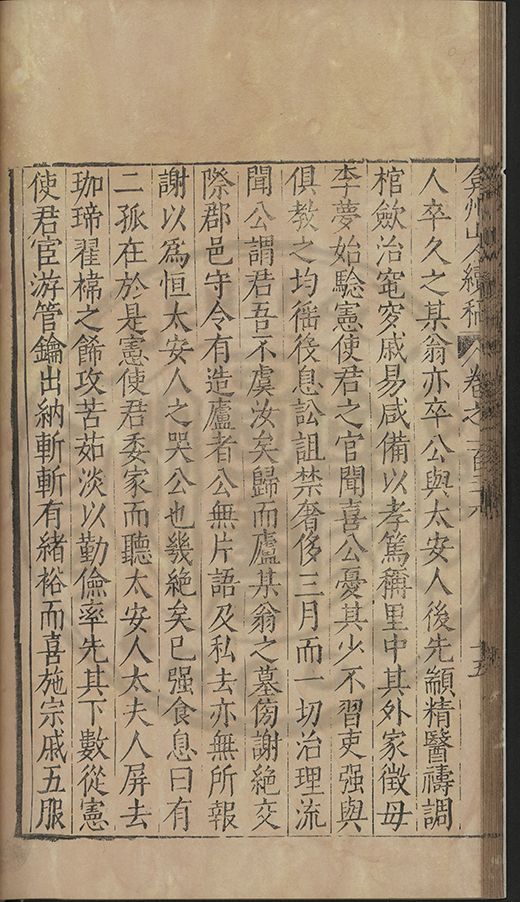 弇州山人續稿 卷之一百三十八 十五
人卒久之某翁亦卒公與太安人後先顓精醫禱調
棺歛治窀穸戚易咸備以孝篤稱里中其外家徵母
李夢始驗憲使君之官聞喜公憂其少不習吏强與
俱教之均徭役息訟詛禁奢侈三月而一切治理流
聞公謂君吾不虞汝矣歸而廬某翁之墓傍謝絕交
際郡邑守令有造廬者公無片語及私去亦無所報
謝以為恒太安人之哭公也幾絕矣已强食息曰有
二孤在於是憲使君委家而聽太安人太夫人屏去
珈瑱翟褕之飾攻苦茹淡以勤儉率先其下數從憲
使君官游管鑰出納斬斬有緒裕而喜施宗戚五服